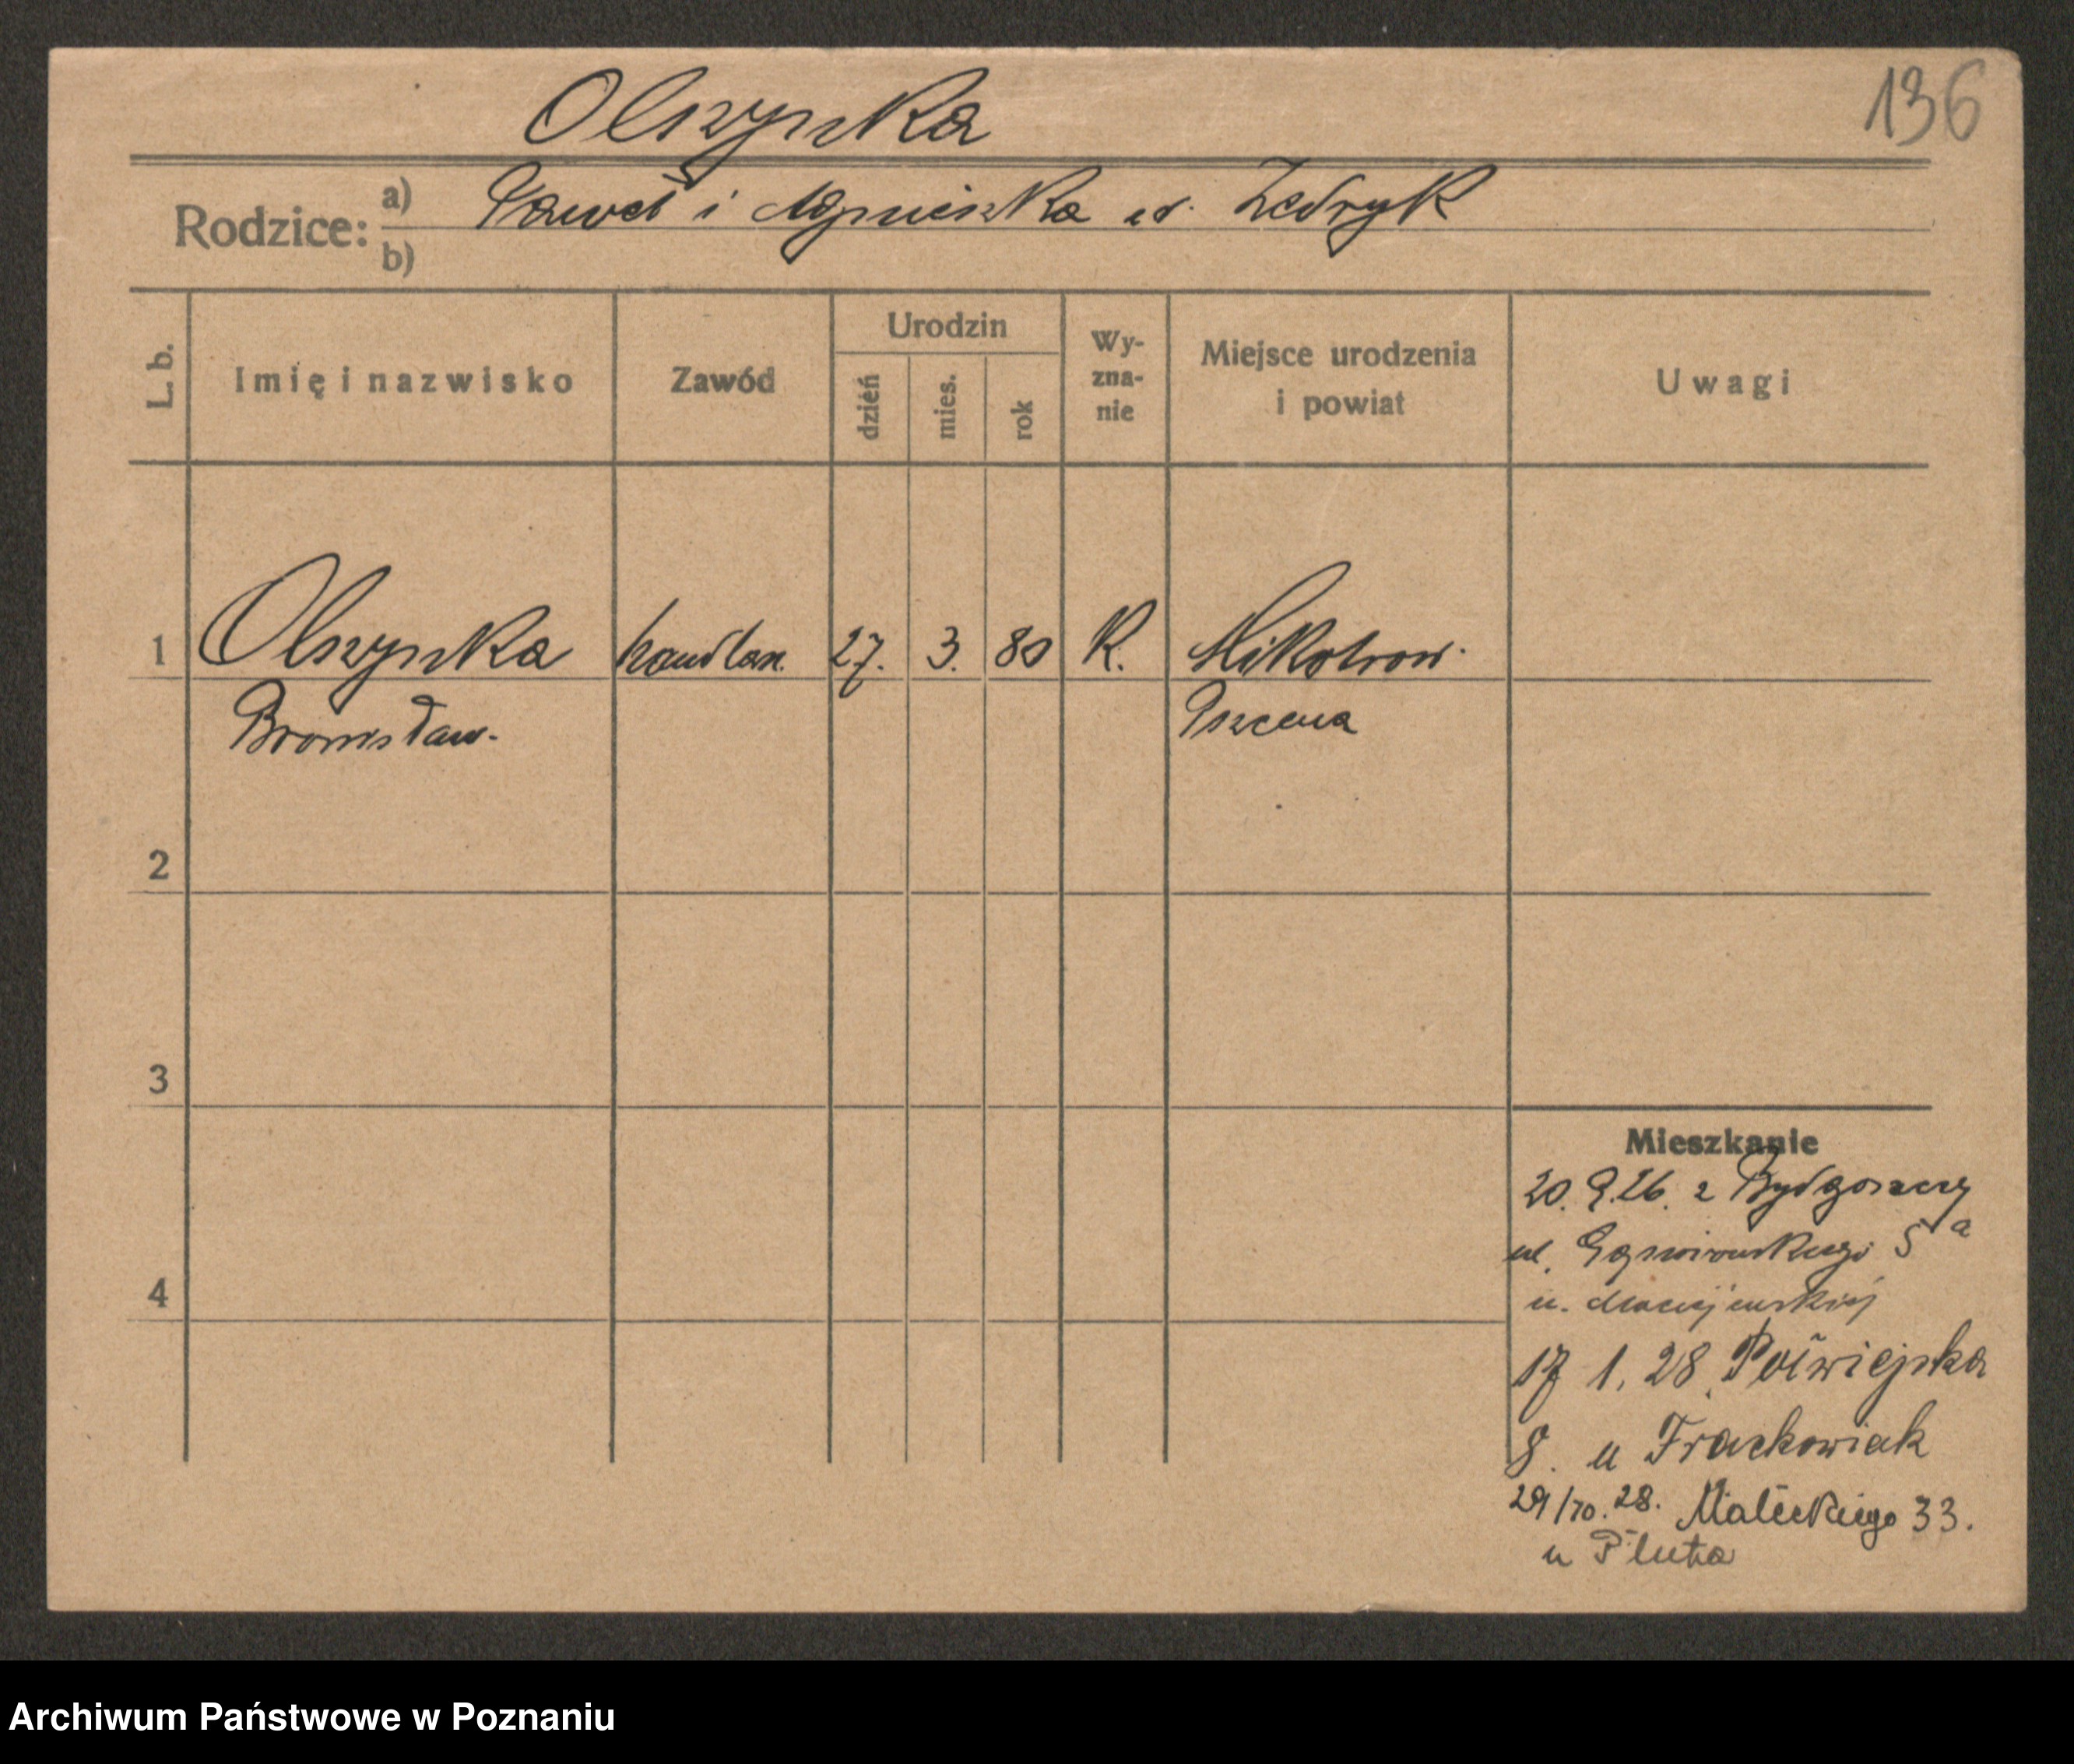 Olszynka
136
Rodzice: a) Paweł i Agnieszka ur. Zedryk
b)
L. b.
Imię i nazwisko
Zawód
Urodzin
dzień
mies.
rok
Wy-
zna-
nie
Miejsce urodzenia
i powiat
Uwagi
1 Olszynka handlarz. 27. 3. 80 K.
Bronisław.
2
3
4
Mieszkanie
20. 9. 26. z Bydgoszczy
ul. 5 a
u. Maciejewskiej
17 1. 28. Półwiejska
8. u Frackowiak
29/10. 28. Małeckiego 33.
u Pluta
Archiwum Państwowe w Poznaniu